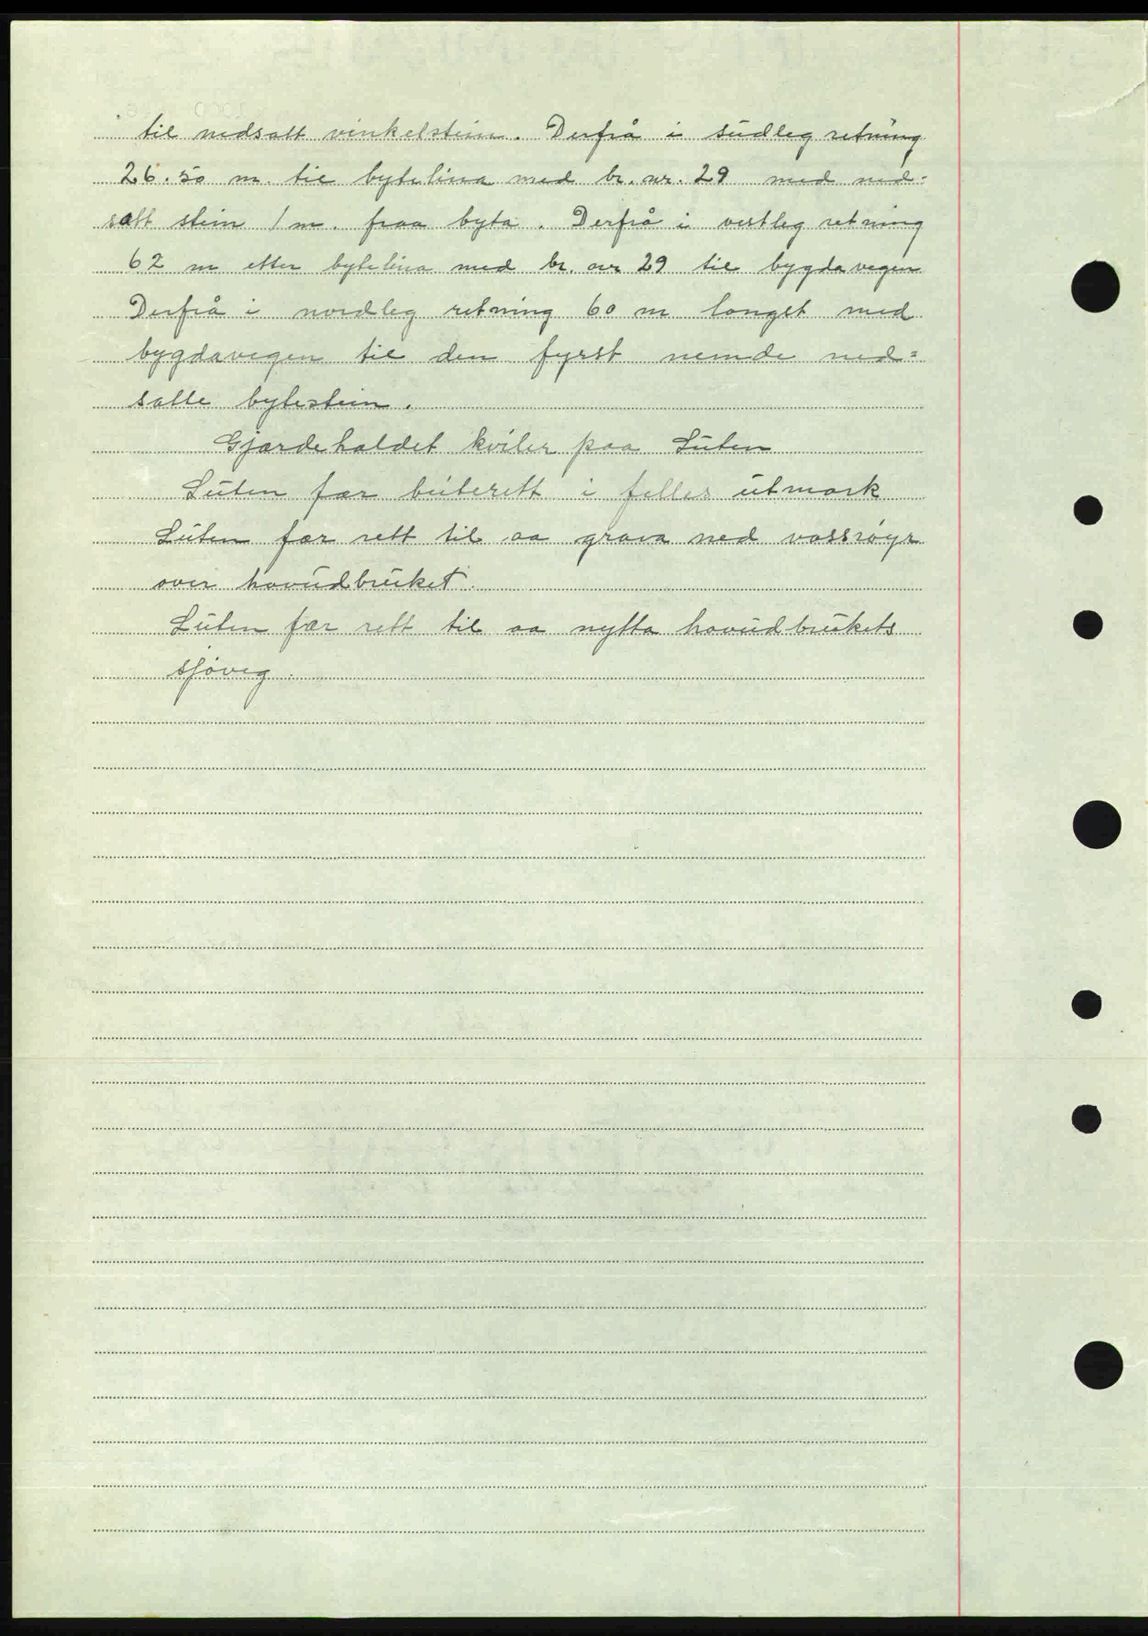 til nedsatt vinkelstein. Derfrå i südleg retning
26.50 m. til bytelina med br. nr. 29 med ned-
satt stein 1 m. fraa byta. Derfrå i vestleg retning
62 m etter bytelina med br. nr 29 til bygdavegen
Derfrå i nordleg retning 60 m langst med
bygdavegen til den fyrst nemde ned=
satte bytestein.
Gjærdehaldet kviler paa Lüten
Lüten fær büterett i felles ütmark
Lüten fær rett til aa grava ned vassrøyr
over hovüdbrüket.
Lüten fær rett til aa nytta hovüdbrükets
sjøveg.